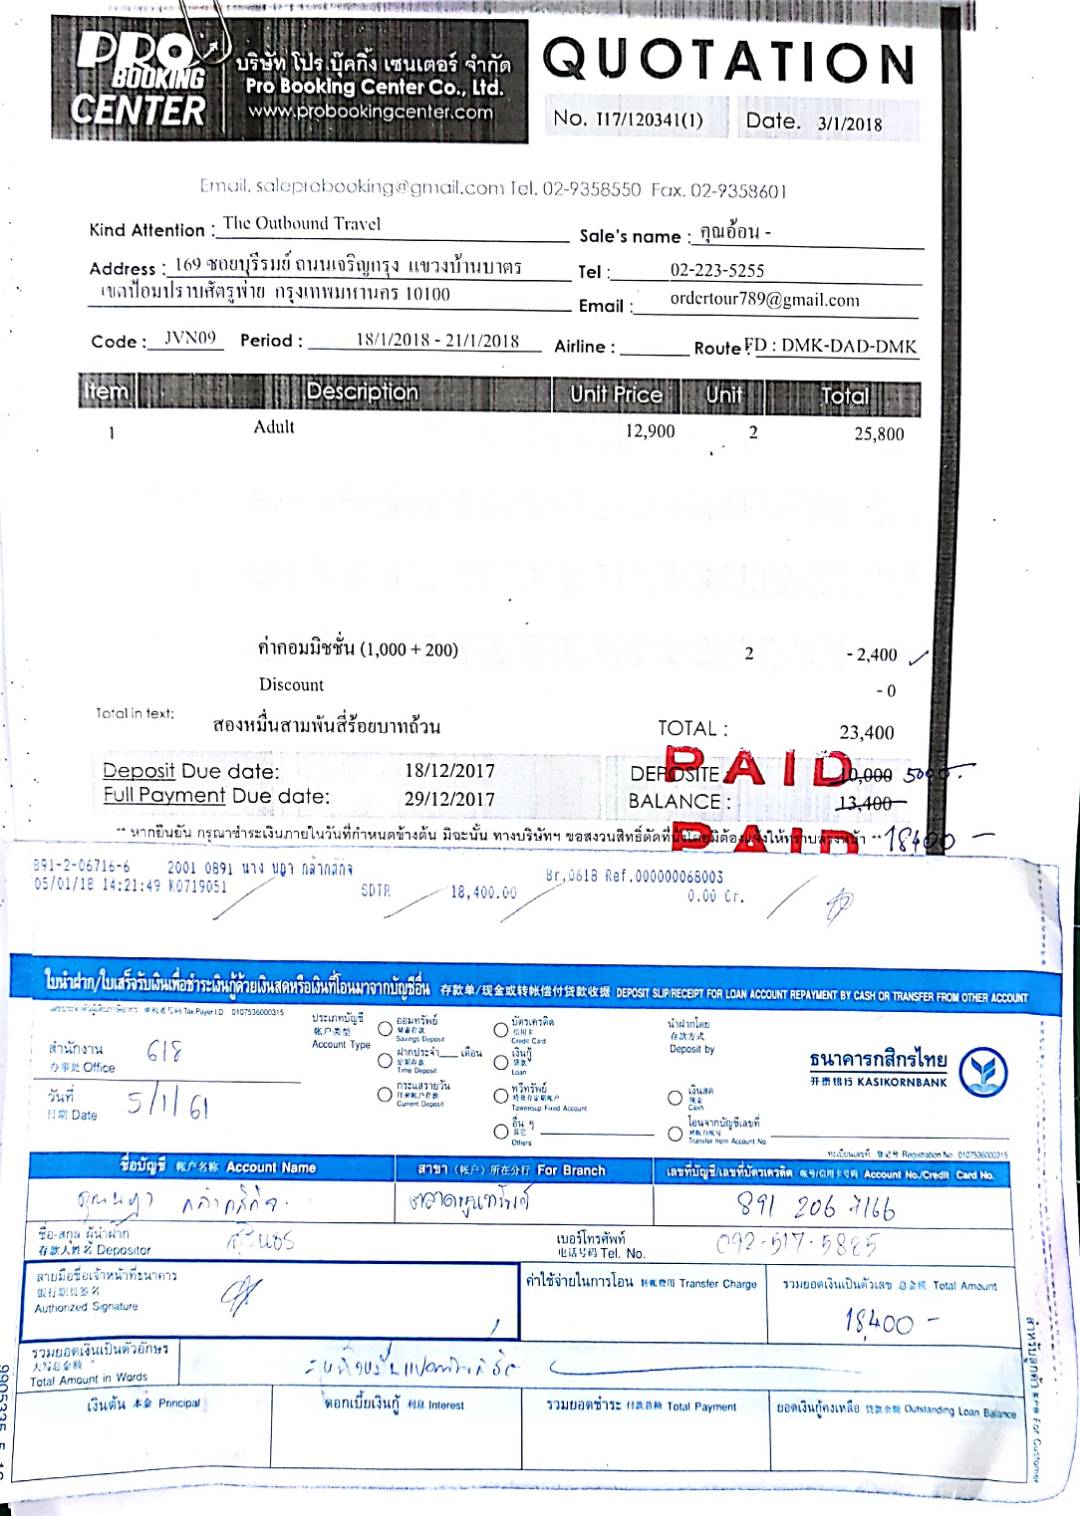 PRO
BOOKING
CENTER
บริษัท โปร บุ๊คกิ้ง เซนเตอร์ จำกัด
Pro Booking Center Co., Ltd.
www.probookingcenter.com
QUOTATION
No. T17/120341(1) Date. 3/1/2018
Email. saleprobooking@gmail.com Tel. 02-9358550 Fax. 02-9358601
Kind Attention : The Outbound Travel Sale's name : คุณอ้อน -
Address : 169 ซอยบุรีรมย์ ถนนเจริญกรุง แขวงบ้านบาตร Tel : 02-223-5255
เขตป้อมปราบศัตรูพ่าย กรุงเทพมหานคร 10100 Email : ordertour789@gmail.com
Code : JVN09 Period : 18/1/2018 - 21/1/2018 Airline : Route : FD : DMK-DAD-DMK
Item Description Unit Price Unit Total
1 Adult 12,900 2 25,800
ค่าคอมมิชชั่น (1,000 + 200) 2 - 2,400
Discount - 0
Total in text: สองหมื่นสามพันสี่ร้อยบาทถ้วน TOTAL : 23,400
Deposit Due date: 18/12/2017 DEPOSITE 10,000 5000.-
PAID
Full Payment Due date: 29/12/2017 BALANCE : 13,400
** หากยืนยัน กรุณาชำระเงินภายในวันที่กำหนดข้างต้น มิฉะนั้น ทางบริษัทฯ ขอสงวนสิทธิ์ตัดที่นั่งโดยมิต้องแจ้งให้ทราบล่วงหน้า ** 18400 -
PAID
891-2-06716-6 2001 0891 นาง นฎา กล้ากสิกิจ Br.0618 Ref.000000068003
05/01/18 14:21:49 K0719051 SDTR 18,400.00 0.00 Cr.
ใบนำฝาก/ใบเสร็จรับเงินเพื่อชำระเงินกู้ด้วยเงินสดหรือเงินที่โอนมาจากบัญชีอื่น 存款单/现金或转帐偿付贷款收据 DEPOSIT SLIP/RECEIPT FOR LOAN ACCOUNT REPAYMENT BY CASH OR TRANSFER FROM OTHER ACCOUNT
Tax Payer I.D. 0107536000315
สำนักงาน 618
办事处 Office
วันที่ 5/1/61
日期 Date
ประเภทบัญชี
帐户类型
Account Type
ออมทรัพย์
储蓄存款
Savings Deposit
ฝากประจำ___เดือน
定期存款
Time Deposit
กระแสรายวัน
Current Deposit
บัตรเครดิต
信用卡
Credit Card
เงินกู้
贷款
Loan
ทวีทรัพย์
Taweesup Fixed Account
อื่น ๆ
其它
Others
นำฝากโดย
存款方式
Deposit by
เงินสด
现金
Cash
โอนจากบัญชีเลขที่
Transfer from Account No.
ธนาคารกสิกรไทย
开泰银行 KASIKORNBANK
ทะเบียนเลขที่ 登记号 Registration No. 0107536000315
ชื่อบัญชี 帐户名称 Account Name สาขา (帐户) 所在分行 For Branch เลขที่บัญชี/เลขที่บัตรเครดิต 帐号/信用卡号码 Account No./Credit Card No.
891 206 7166
ชื่อ-สกุล ผู้นำฝาก
存款人姓名 Depositor
เบอร์โทรศัพท์
电话号码 Tel. No. 092-517-5885
ลายมือชื่อเจ้าหน้าที่ธนาคาร
银行职员签名
Authorized Signature
ค่าใช้จ่ายในการโอน 转帐费用 Transfer Charge
รวมยอดเงินเป็นตัวเลข 总金额 Total Amount
18,400 -
รวมยอดเงินเป็นตัวอักษร
大写总金额
Total Amount in Words
เงินต้น 本金 Principal ดอกเบี้ยเงินกู้ 利息 Interest รวมยอดชำระ 付款总额 Total Payment ยอดเงินกู้คงเหลือ 贷款余额 Outstanding Loan Balance
สำหรับลูกค้า For Customer